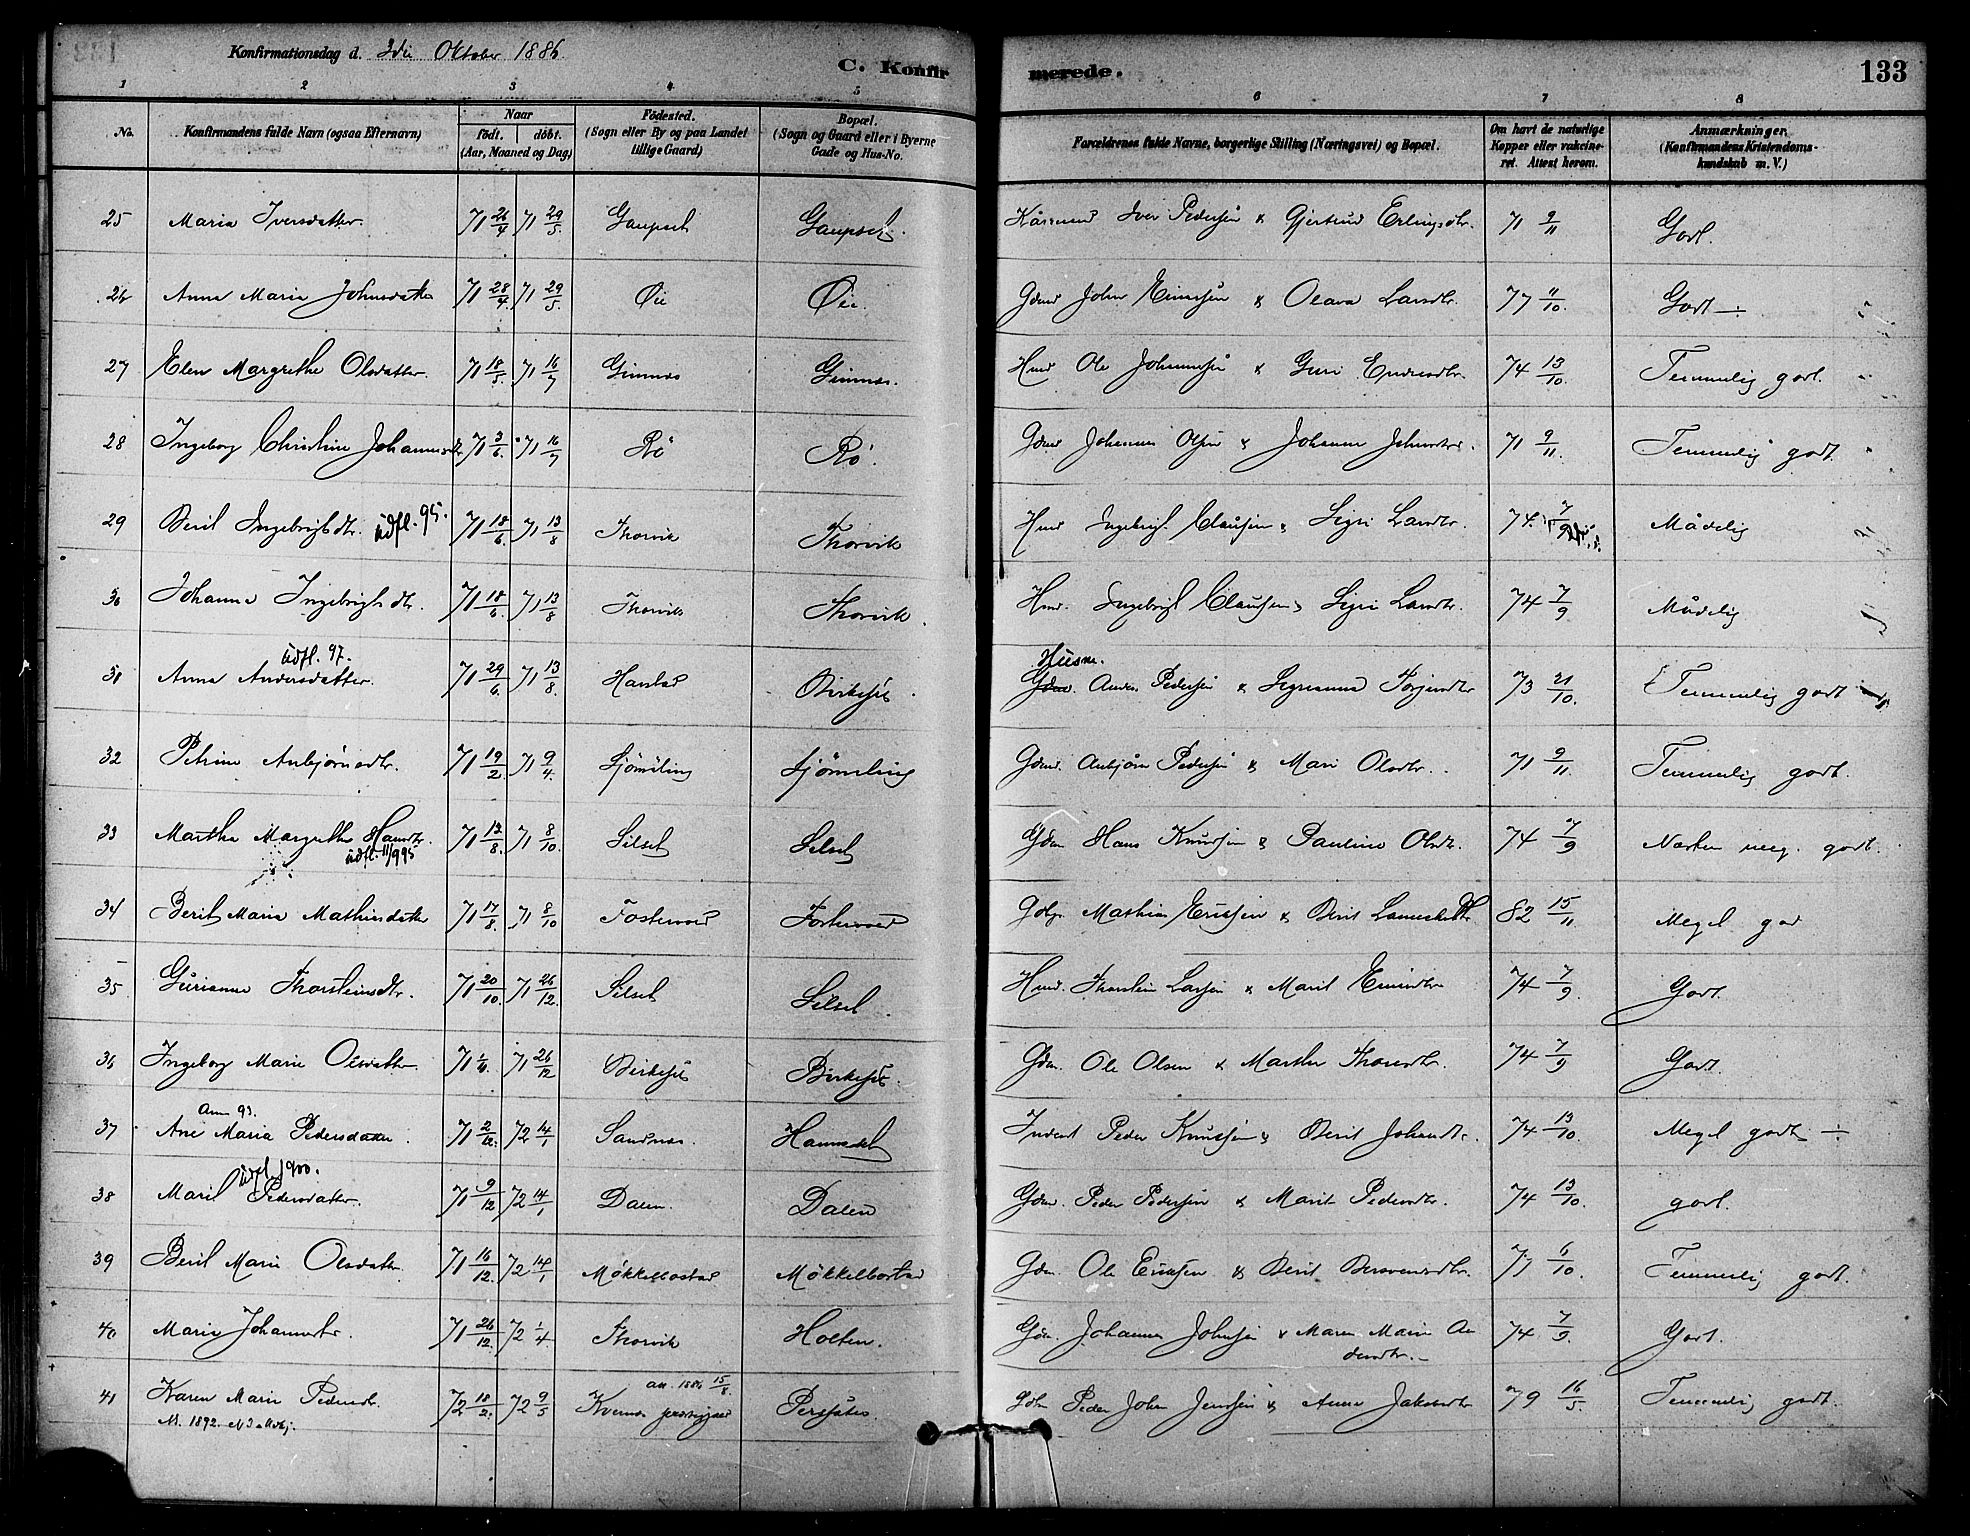 Konfirmationsdag d. 3die Oktober 1886.
C. Konfirmerede.
133
1 2 3 4 5 6 7 8
No. Konfirmandens fulde Navn (ogsaa Efternavn) Naar født. døbt. (Aar, Maaned og Dag) Fødested. (Sogn eller By og paa Landet tillige Gaard) Bopæl. (Sogn og Gaard eller i Byerne Gade og Hus-No. Forældrenes fulde Navne, borgerlige Stilling (Næringsvei) og Bopæl. Om havt de naturlige Kopper eller vakcineret. Attest herom. Anmærkninger. (Konfirmandens Kristendomskundskab m. V.)
25 Maria Iversdatter. 71 26/4 71 29/5. Gaupset Gaupset. Iver Pedersen & Gjertrud Erlingsdtr. 71 9/11 Godt.
26 Anna Maria Johnsdatter 71 28/4. 71 29/5. Øie Øie. Gdmd John Einersen & Olava Larsdtr. 77 11/10. Godt —
27 Elen Margrethe Olsdatter. 71 18/5. 71 16/7 Gimnæs Gimnæs. Hmd Ole Johannesen & Guri Endresdtr. 74 13/10. Temmelig godt.
28 Ingeborg Christine Johannesdtr 71 3/6. 71 16/7 Rø Rø. Gdmd Johannes Olsen & Johanna Johnsdtr. 71 9/11. Temmelig godt.
29 Berit Ingebrigtsdtr. udfl. 95. 71 18/6. 71 13/8 Thorvik Thorvik Hmd Ingebrigt Clausen & Sigri Larsdtr. 74. 7/9 Mådelig
30 Johanna Ingebrigtsdtr. 71 18/6. 71 13/8 Thorvik Thorvik. Hmd. Ingebrigt Clausen & Sigri Larsdtr. 74 7/9 Mådelig
udfl. 97.
31 Anna Andersdatter. 71 29/6. 71 13/8. Harstad Birkesæt. Husm. Gdm. Anders Pedersen & 73 21/10. Temmelig godt
32 Petrine Anbjørnsdtr. 71 19/2 71 9/4. Sjømeling Sjømeling Gdmd. Anbjørn Pedersen & Mari Olsdtr. 71 9/11. Temmelig godt.
33 Martha Margrethe Hansdtr. 71 13/8. 71 8/10. Silset Silset Gdm Hans Knudsen & Pauline Olsdtr. 74 7/9 Næsten meg. godt.
udfl. 11/9 95
34 Berit Maria Mathiasdatter 71 17/8. 71 8/10 Fostervold Fostervold Mathias Ericksen & Berit 82 15/11 Meget god
35 Gurianna Thorsteinsdtr. 71 20/10. 71 26/12. Silset Silset. Hmd. Thorstein Larsen & Marit 74 7/9. Godt.
36 Ingeborg Marie Olsdatter 71 71 26/12 Birkesæt Birkesæt. Gdm. Ole Olsen & Martha Thoresdtr. 74 7/9 Godt.
93.
37 Ane Maria Pedersdatter. 71 2/12. 72 14/1 Sandnæs. Hannedal Peder Knudsen & Berit Johansdtr. 74 13/10. Meget godt
udfl. 1900.
38 Marit Pedersdatter. 71 9/12 72 14/1 Dalen. Dalen Gdm. Peder Pedersen & Marit Pedersdtr. 74 13/10. godt.
39 Berit Marie Olsdatter 71 16/12. 72 14/1 Møkkelbostad Møkkelbostad Gdm. Ole Ericksen & Berit 6/10. Temmelig godt.
40 Maria Johannesdtr. 71 26/12. 72 1/4 Thorvik Holten. Gdm. Johannes Johnsen & Maren Marie An
dersdtr. — 74 7/9. Godt.
an. 1886 15/8.
41 Karen Marie Pedersdtr. 72 18/2. 72 9/5 Kvernes Gdm Peder John Jenssen & Anne Jakobsdtr 79 16/5 Temmelig godt.
1892.